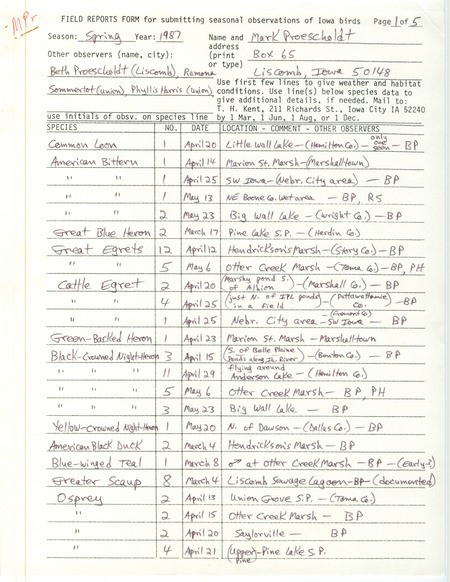 -MPr
FIELD REPORTS FORM for submitting seasonal observations of Iowa birds Page 1 of 5
Season: Spring Year: 1987 Name and Mark Proescholdt
address
Other observers (name, city): (print Box 65
or type)
Beth Proescholdt (Liscomb), Ramona Liscomb, Iowa 50148
Sommerlot (Union), Phyllis Harris (Union) Use first few lines to give weather and habitat
conditions. Use line(s) below species data to
give additional details, if needed. Mail to:
T. H. Kent, 211 Richards St., Iowa City IA 52240
use initials of obsv. on species line by 1 Mar, 1 Jun, 1 Aug, or 1 Dec.
SPECIES NO. DATE LOCATION - COMMENT - OTHER OBSERVERS
Common Loon 1 April 20 Little Wall Lake - (Hamilton Co.) - only one seen - BP
American Bittern 1 April 14 Marion St. Marsh - (Marshalltown)
" " 1 April 25 SW Iowa - (Nebr. City area) - BP
" " 1 May 13 NE Boone Co. Wet area - BP, RS
" " 2 May 23 Big Wall Lake - (Wright Co.) - BP
Great Blue Heron 2 March 17 Pine Lake S.P. - (Hardin Co.)
Great Egrets 12 April 12 Hendrickson's Marsh - (Story Co.) - BP
" " 5 May 6 Otter Creek Marsh - (Tama Co.) - BP, PH
Cattle Egret 2 April 20 (Marshy pond S. of Albion) - (Marshall Co.) - BP
" " 4 April 25 (just N. of IPL ponds in a field) - (Pottawattamie Co.) - BP
" " 1 April 25 Nebr. City area - SW Iowa - (Fremont Co.) - BP
Green-Backed Heron 1 April 23 Marion St. Marsh - Marshalltown
Black-Crowned Night-Heron 3 April 15 (S. of Belle Plaine Ponds along Ia. River) - (Benton Co.) - BP
" " 11 April 29 flying around Anderson Lake - (Hamilton Co.)
" " 5 May 6 Otter Creek Marsh - BP, PH
" " 3 May 23 Big Wall Lake - BP
Yellow-Crowned Night-Heron 1 May 20 N. of Dawson - (Dallas Co.) - BP
American Black Duck 2 March 4 Hendrickson's Marsh - BP
Blue-winged Teal 1 March 8 ♂ at Otter Creek Marsh - BP - (early?)
Greater Scaup 8 March 4 Liscomb Sewage Lagoon - BP - (documented)
Osprey 2 April 13 Union Grove S.P. - (Tama Co.)
" 2 April 15 Otter Creek Marsh - BP
" 2 April 20 Saylorville - BP
" 4 April 21 (Upper) - Pine Lake S.P.
Pine